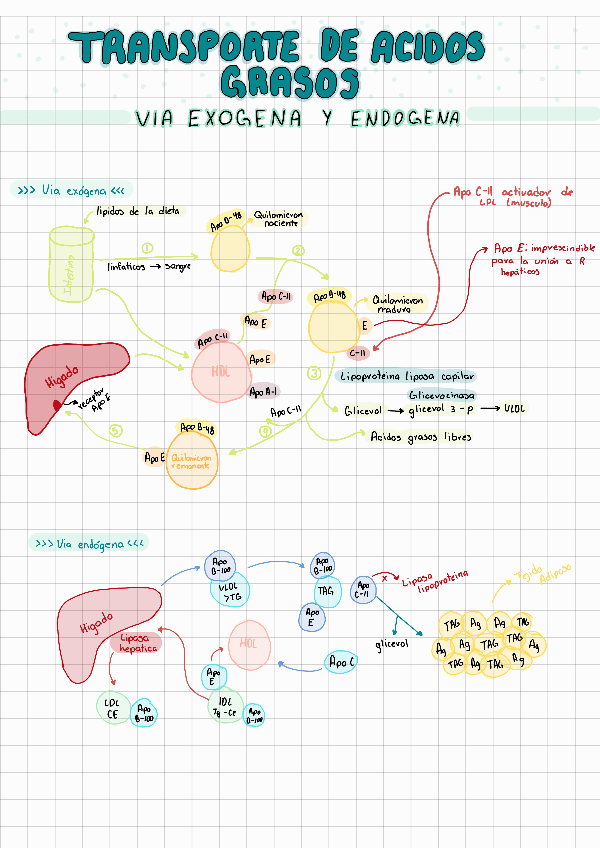 TRANSPORTE DE ACIDOS
GRASOS
VIA EXOGENA Y ENDOGENA
>>> Via exógena <<<
Apo C-II activador de
LDL (musculo)
lipidos de la dieta
Apo B-48
Quilomicron
naciente
Intestino
1
linfaticos → sangre
2
Apo E: imprescindible
para la unión a R
hepáticos
Apo C-II
Apo B-48
Quilomicron
maduro
Apo E
E
Apo C-II
C-II
Higado
HDL
Apo E
receptor
Apo E
Apo A-I
3
Lipoproteina liposa capilar
Glicerocinasa
Apo C-II
Glicerol → glicerol 3-p → VLDL
Apo B-48
4
Acidos grasos libres
5
Apo E
Quilomicron
remanente
>>> Via endógena <<<
Apo
B-100
VLDL
>TG
Apo
B-100
TAG
Apo
E
Apo
C-II
x
Liposa
lipoproteina
Tejido
Adiposo
Higado
Liposa
hepatica
HDL
glicerol
TAG Ag Ag TAG
Ag TAG TAG Ag
TAG Ag TAG Ag
Apo C
Apo
E
LDL
CE
Apo
B-100
IDL
Tg-Ce
Apo
B-100